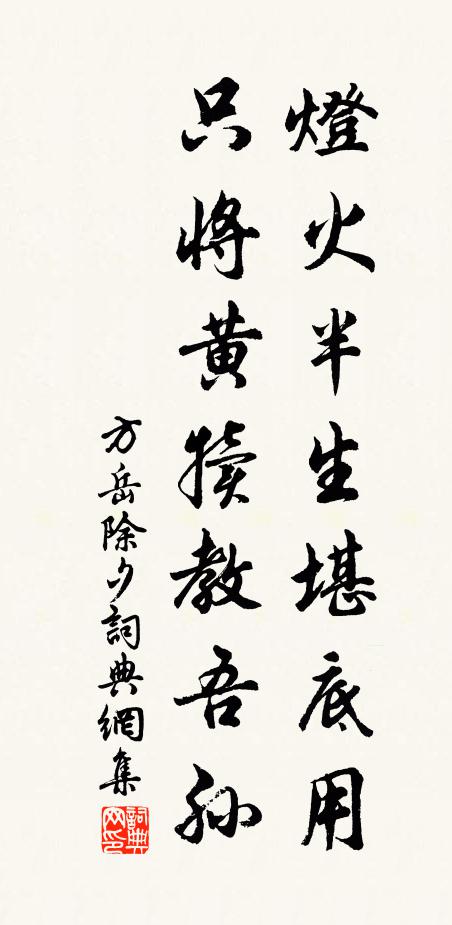 燈火半生堪底用
只將黃犢教吾孫
方岳除夕詞典網集
詞典网印